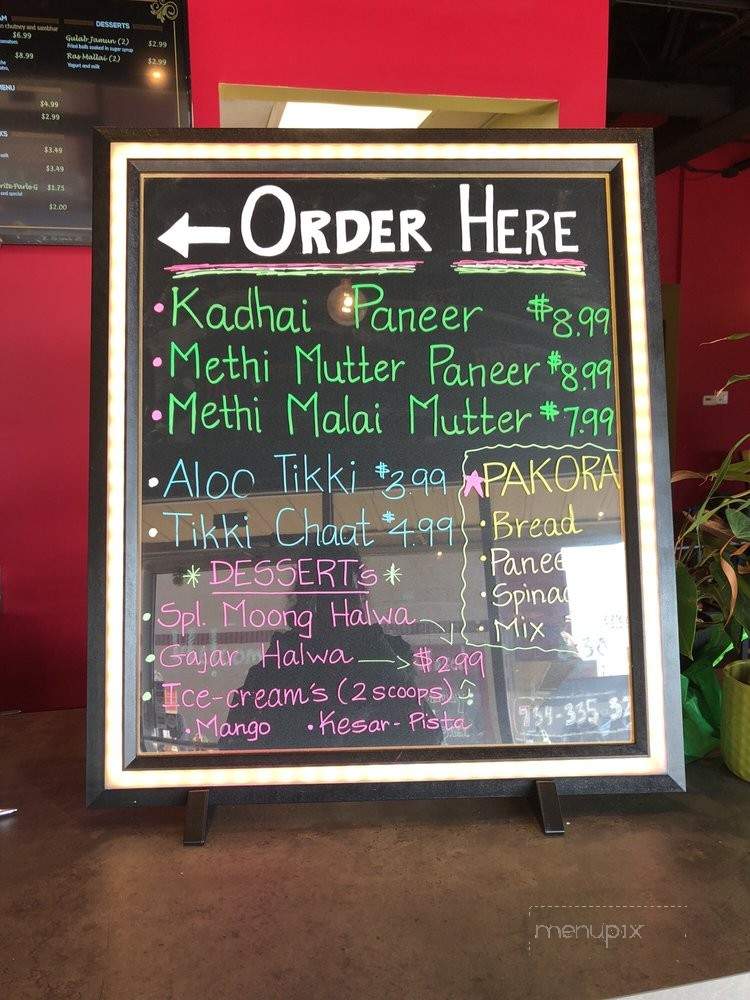 DESSERTS
$6.99
Gulab Jamun (2) $2.99
Fried balls soaked in sugar syrup
$8.99
Ras Mallai (2) $2.99
Yogurt and milk
$4.99
$2.99
$3.49
$3.49
$1.75
$2.00
ORDER HERE
• Kadhai Paneer $8.99
• Methi Mutter Paneer $8.99
• Methi Malai Mutter $7.99
• Aloo Tikki $3.99
• Tikki Chaat $4.99
PAKORA
• Bread
• Panee
• Spinac
• Mix
DESSERTs
• Spl. Moong Halwa
• Gajar Halwa → $2.99
• Ice-cream's (2 scoops)
• Mango • Kesar-Pista
menupix